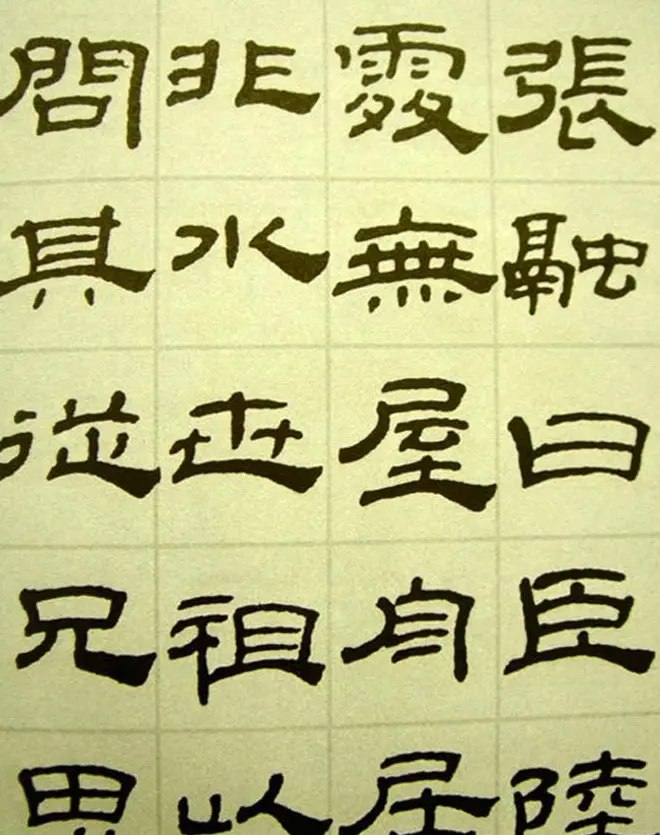 張融曰臣陸
處無屋舟居
非水世祖以
問其從兄